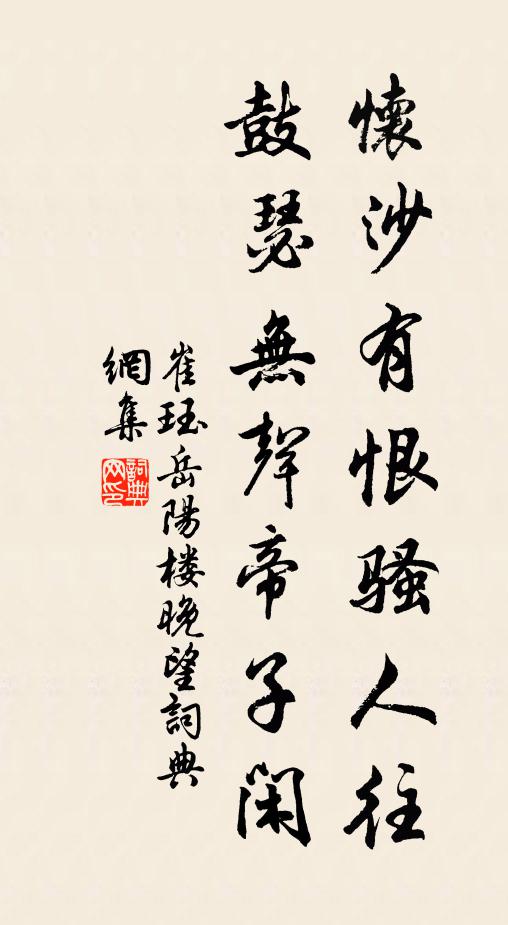 懷沙有恨骚人往
鼓瑟無聲帝子闲
崔珏岳陽楼晚望詞典
網集
詞典
网印